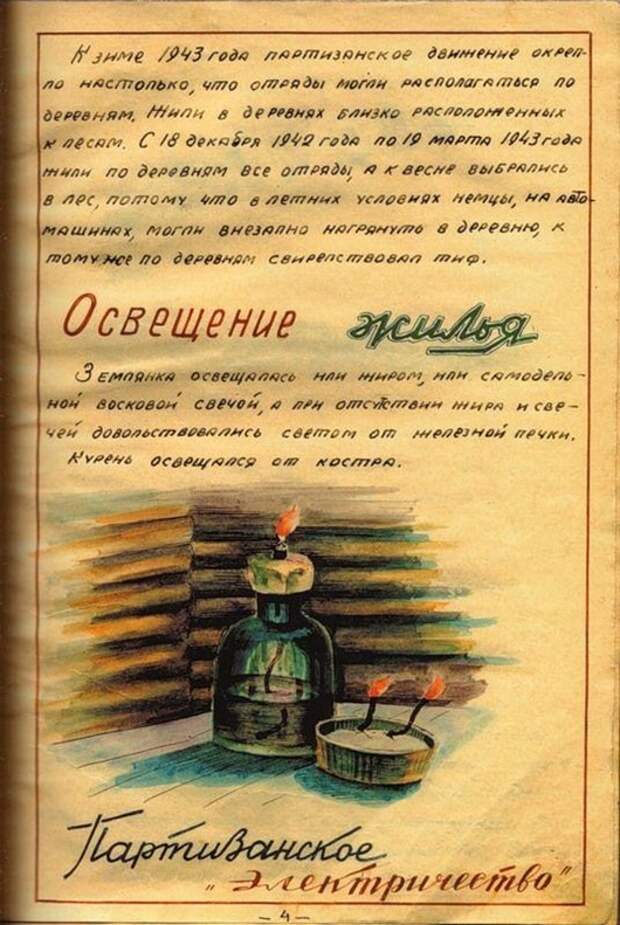 К зиме 1943 года партизанское движение окреп-
ло настолько, что отряды могли располагаться по
деревням. Жили в деревнях близко расположенных
к лесам. С 18 декабря 1942 года по 19 марта 1943 года
жили по деревням все отряды, а к весне выбрались
в лес, потому что в летних условиях немцы, на авто-
машинах, могли внезапно нагрянуть в деревню, к
тому же по деревням свирепствовал тиф.
Освещение жилья
Землянка освещалась или жиром, или самодель-
ной восковой свечой, а при отсутствии жира и све-
чей довольствовались светом от железной печки.
Курень освещался от костра.
Партизанское
„электричество"
— 4 —